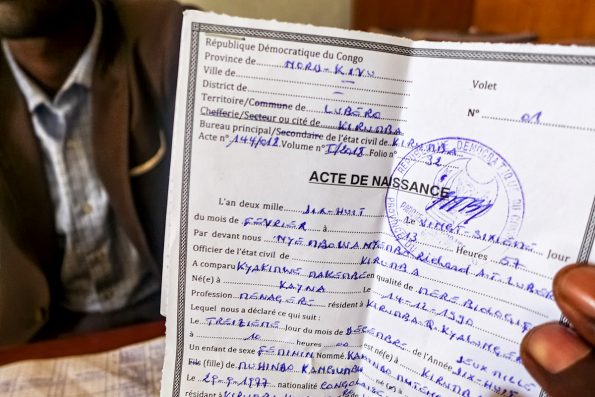 République Démocratique du Congo
Province de NORD-KIVU
Ville de —
District de —
Territoire/Commune de LUBERO
Chefferie/Secteur ou cité de KIRUMBA
Bureau principal/Secondaire de l'état civil de KIRUMBA
Acte n° 144/012 Volume n° I/2018 Folio n° 32
Volet
N° 01
ACTE DE NAISSANCE
L'an deux mille DIX-HUIT le VINGT-SIXIEME Jour
du mois de FEVRIER à 13 Heures 57
Par devant nous NYEMBO WA NYEMBO Richard A.T. LUBERO
Officier de l'état civil de KIRUMBA
A comparu KYAKIMWE MAKEMBE en qualité de MERE BIOLOGIQUE
Né(e) à KAYNA le 14-12-1990
Profession MENAGERE résident à KIRUMBA Q. KYALANGERE
Lequel nous a déclaré ce qui suit :
Le TREIZIEME Jour du mois de DECEMBRE de l'Année DEUX MILLE
à 10 heures 00 est né(e) à KIRUMBA
Un enfant de sexe FEMININ Nommé KAHINDO
Fils (fille) de MUHINDO né (e) à
Le nationalité CONGOLAISE
résidant à